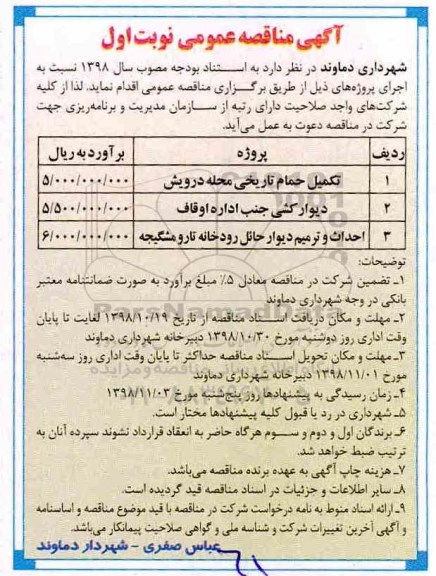 آگهی مناقصه عمومی نوبت اول
شهرداری دماوند در نظر دارد به استناد بودجه مصوب سال ۱۳۹۸ نسبت به
اجرای پروژه‌های ذیل از طریق برگزاری مناقصه عمومی اقدام نماید. لذا از کلیه
شرکت‌های واجد صلاحیت دارای رتبه از سازمان مدیریت و برنامه‌ریزی جهت
شرکت در مناقصه دعوت به عمل می‌آید.
ردیف پروژه برآورد به ریال
۱ تکمیل حمام تاریخی محله درویش ۵/۰۰۰/۰۰۰/۰۰۰
۲ دیوارکشی جنب اداره اوقاف ۵/۵۰۰/۰۰۰/۰۰۰
۳ احداث و ترمیم دیوار حائل رودخانه تارو مشگیجه ۶/۰۰۰/۰۰۰/۰۰۰
توضیحات:
۱ـ تضمین شرکت در مناقصه معادل ۵٪ مبلغ برآورد به صورت ضمانتنامه معتبر
بانکی در وجه شهرداری دماوند
۲ـ مهلت و مکان دریافت اسناد مناقصه از تاریخ ۱۳۹۸/۱۰/۱۹ لغایت تا پایان
وقت اداری روز دوشنبه مورخ ۱۳۹۸/۱۰/۳۰ دبیرخانه شهرداری دماوند
۳ـ مهلت و مکان تحویل اسناد مناقصه حداکثر تا پایان وقت اداری روز سه‌شنبه
مورخ ۱۳۹۸/۱۱/۰۱ دبیرخانه شهرداری دماوند
۴ـ زمان رسیدگی به پیشنهادها روز پنج‌شنبه مورخ ۱۳۹۸/۱۱/۰۳
۵ـ شهرداری در رد یا قبول کلیه پیشنهادها مختار است.
۶ـ برندگان اول و دوم و سوم هرگاه حاضر به انعقاد قرارداد نشوند سپرده آنان به
ترتیب ضبط خواهد شد.
۷ـ هزینه چاپ آگهی به عهده برنده مناقصه می‌باشد.
۸ـ سایر اطلاعات و جزئیات در اسناد مناقصه قید گردیده است.
۹ـ ارائه اسناد منوط به نامه درخواست شرکت در مناقصه با قید موضوع مناقصه و اساسنامه
و آگهی آخرین تغییرات شرکت و شناسه ملی و گواهی صلاحیت پیمانکار می‌باشد.
عباس صفری - شهردار دماوند